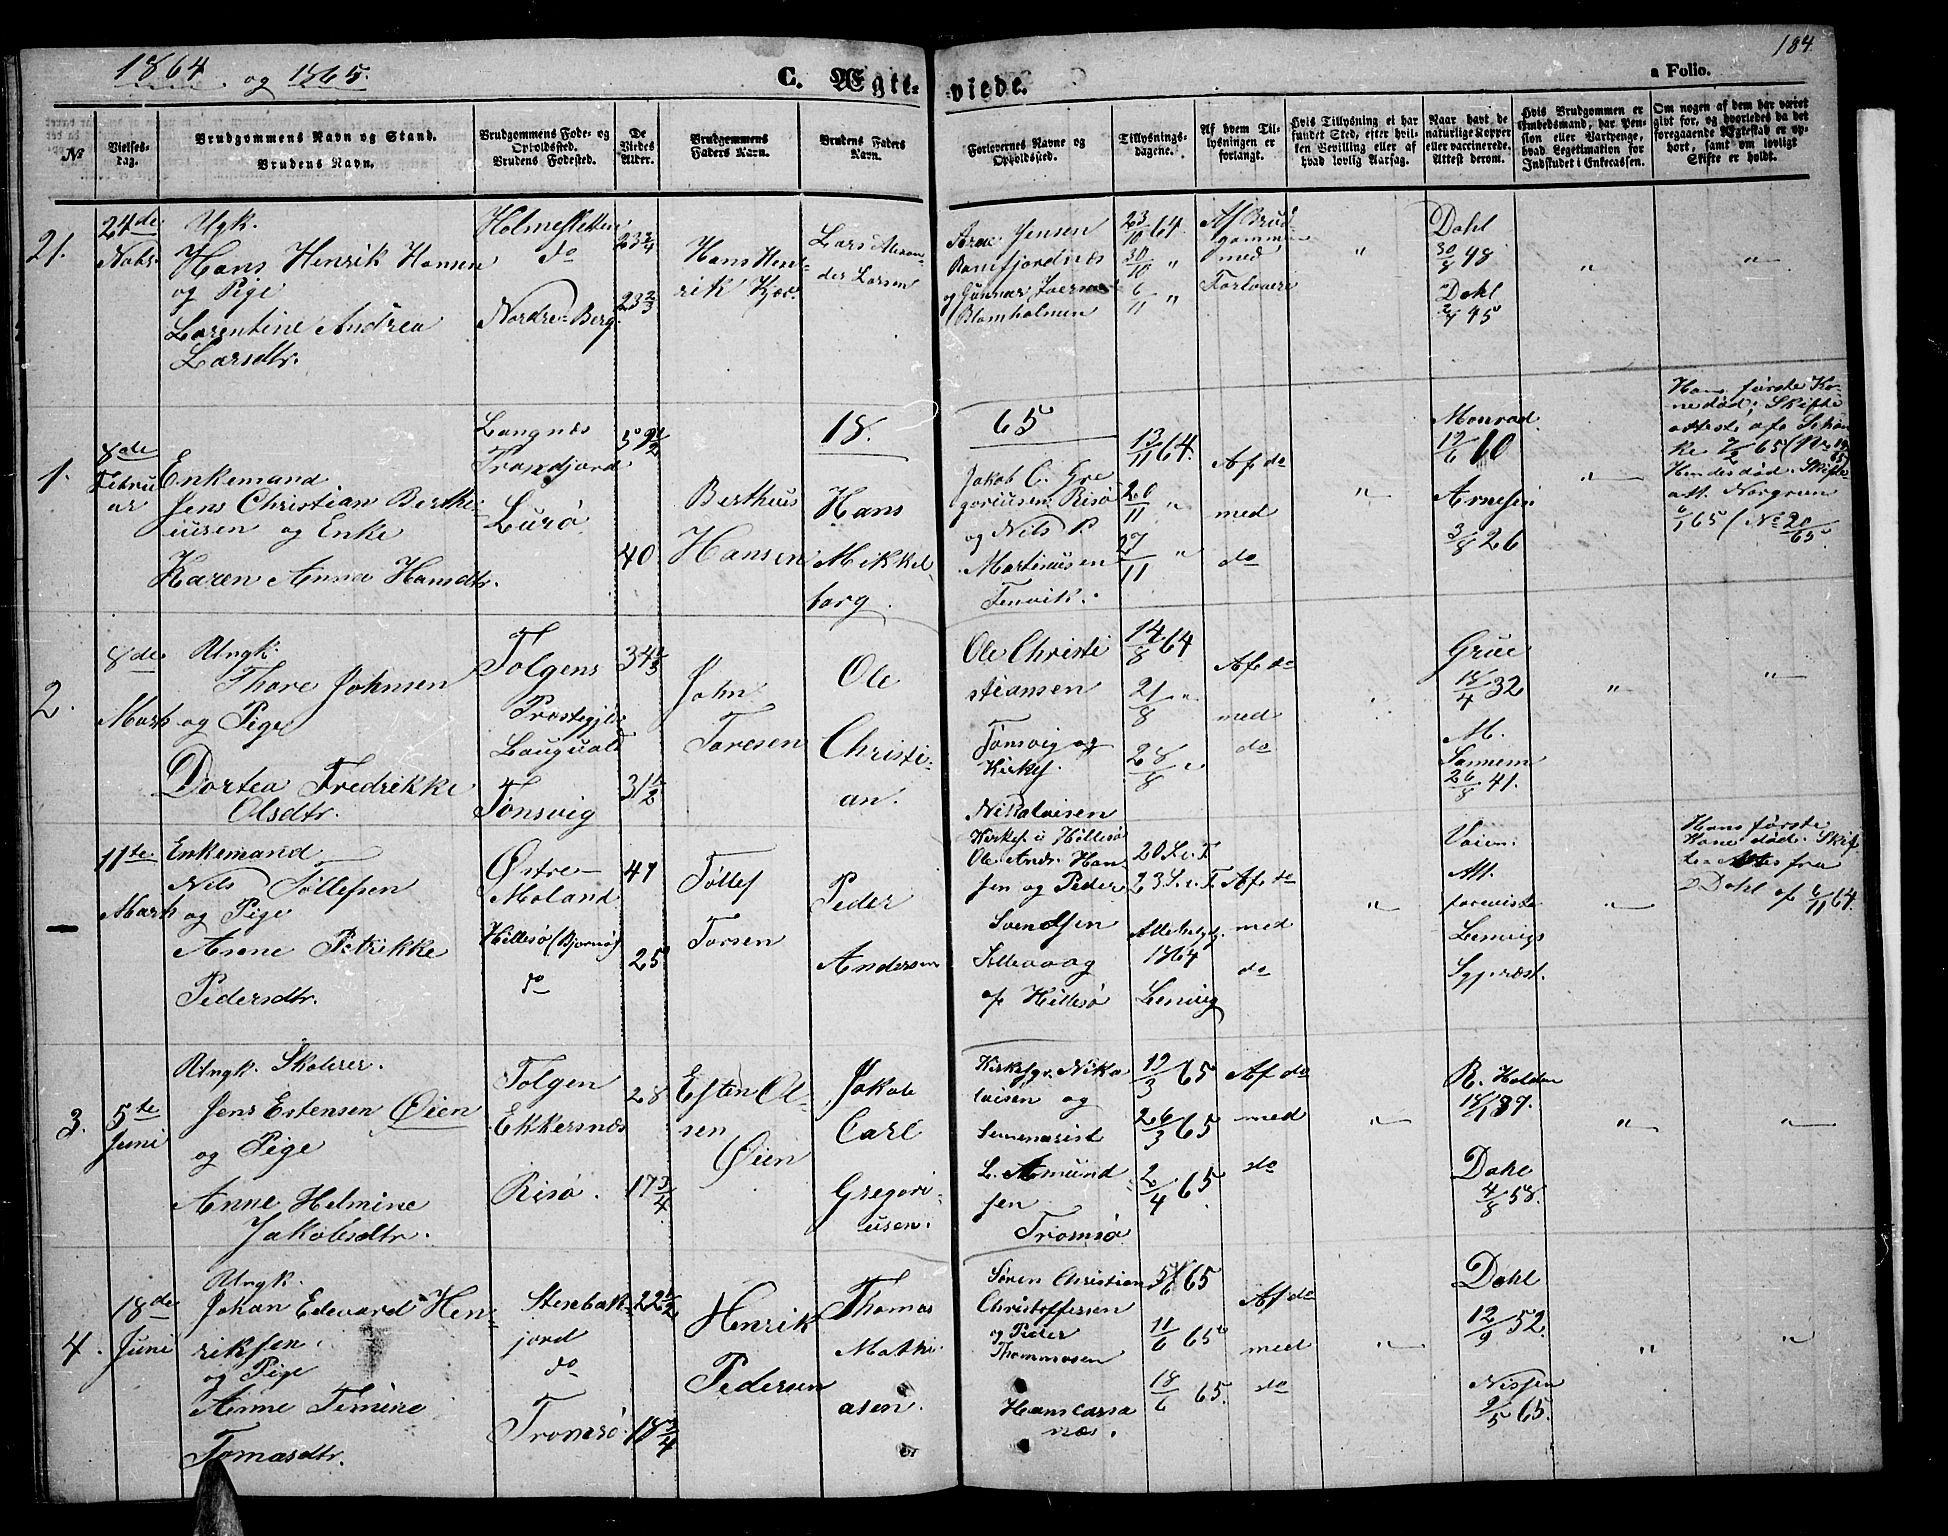 1864 og 1865.
C. Ægte-
viede.
a Folio.
184.
No
Vielses-
dag.
Brudgommens Navn og Stand.
Brudens Navn.
Brudgommens Føde- og
Opholdssted.
Brudens Fødested.
De
Viedes
Alder.
Brudgommens
Faders Navn.
Brudens Faders
Navn.
Forlovernes Navne og
Opholdssted.
Tillysnings-
dagene.
Af hvem Til-
lysningen er
forlangt.
Hvis Tillysning ei har
fundet Sted, efter hvil-
ken Bevilling eller af
hvad lovlig Aarsag.
Naar havt de
naturlige Kopper
eller vaccinerede.
Attest derom.
Hvis Brudgommen er
Embedsmand, har Pen-
sion eller Vartpenge,
hvad Legitimation for
Indskudet i Enkecassen.
Om nogen af dem har været
gift for, og hvorledes da det
foregaaende Ægteskab er op-
hørt, samt om lovligt
Skifte er holdt.
21.
24de
Novbr.
Ugk.
Hans Henrik Hansen
og Pige
Lorentine Andrea
Larsdtr.
do
Nordre-Berg.
23 3/4
23 2/3
Hans Hen-
rik
Lars Alexan-
der Larsen
Arne Jensen
og Gunnar
23/10 64.
30/10 "
6/11 "
Af Brud
gommen
med
Forlovere
"
Dahl
30/8 48
Dahl
45
"
"
18.
65
1.
8de
Februar
Enkemand
Jens Christian Berthe-
usen og Enke
Karen Anna Hansdtr.
Langnæs
Lurø
59 1/2
40
Berthus
Hansen
Hans
Mikkel-
borg.
Jakob C. Gre
goriusen Risø
og Nils P.
Martinusen
Tenvik.
13/11 64.
20/11 "
27/11 "
Af do
med
do
"
Monrad.
12/6 10
Arnesen
3/8 26
"
Hans første Ko-
ne død; Skifte
2.
8de
Marts
Ungk.
Thore Johnsen
og Pige
Dortea Fredrikke
Olsdtr.
Tolgens
Præstegjeld
Tønsvig
34 1/3
31 1/2
John
Toresen
Ole
Christi-
an.
Ole Christi
stiansen
Tønsvig og
Kirkes.
Nikolaisen
14/8 64
21/8 "
28/8 "
Af do
med
do
"
Grue
18/4 32
M.
26/8 41.
"
"
11te
Marts
Enkemand
Nils Tøllefsen
og Pige
Anne Petrikke
Pedersdtr.
Østre-
Moland
Hillesø (Bjornø)
do
47
25
Tøllef
Torsen
Peder
Andersen
Kirkes. i Hillesø
Ole Andr. Han-
sen og Peder
Svendsen
af Hillesø
20 S. e. T.
23 S. e. T.
1864
Lenvig
Af do
med
do
"
Att.
foreviste
Lenvigs
Sgpræst.
"
Hans første
Kone død: Skif-
Dahl af 6/11 64.
3.
5te
Juni
Ungk. Skolerer.
Jens Estensen Øien
og Pige
Anne Helmine
Jakobsdtr.
Tolgen
Ekkersnæs
Risø.
28
17 3/4
Esten Ol-
sen
Øien
Jakob
Carl
Gregori-
usen.
Kirkesgr. Niko
laisen og
Semenarist
L. Amund
sen
Tromsø
19/3 65
26/3 65
2/4 65
Af do
med
do
"
R. Holden
39.
Dahl
4/8 58.
"
"
4.
18de
Juni
Ungk.
Johan Edevard Hen-
riksen
og Pige
Anne Temine
Tomasdtr.
Stenbak-
jord
do
Tromsø
22 1/2
18 3/4
Henrik
Pedersen
Thomas
Mathi
asen.
Søren Christian
Christoffersen
og Peder
Thommasen
Hans Larsa
næs.
5/6 65
11/6 65
18/6 65.
Af do
med
do
"
Dahl
12/9 52.
Nissen
2/5 65.
"
"